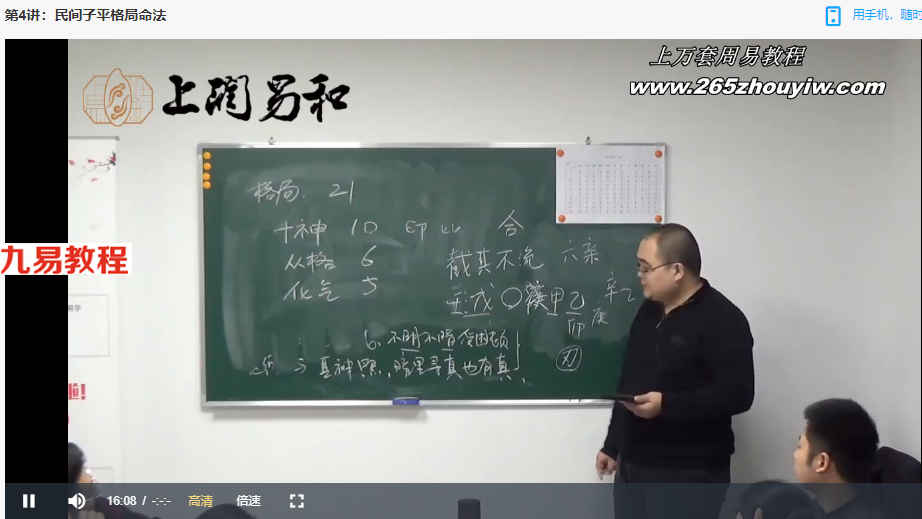 第4讲：民间子平格局命法
用手机，随时
上万套周易教程
www.265zhouyiw.com
上润易和
九易教程
格局. 21
十神 10 印 比 合
从格 6 截其不流 六亲
化气 5
壬戊 甲乙 辛乙
卯 庚
6. 不明不暗受困顿
真神照, 暗里寻真也有真,
刃
16:08 / -:-:-
高清
倍速